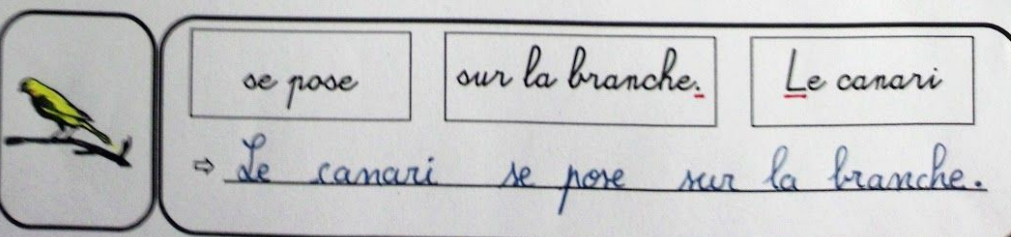 se pose sur la branche. Le canari
⇨ Le canari se pose sur la branche.